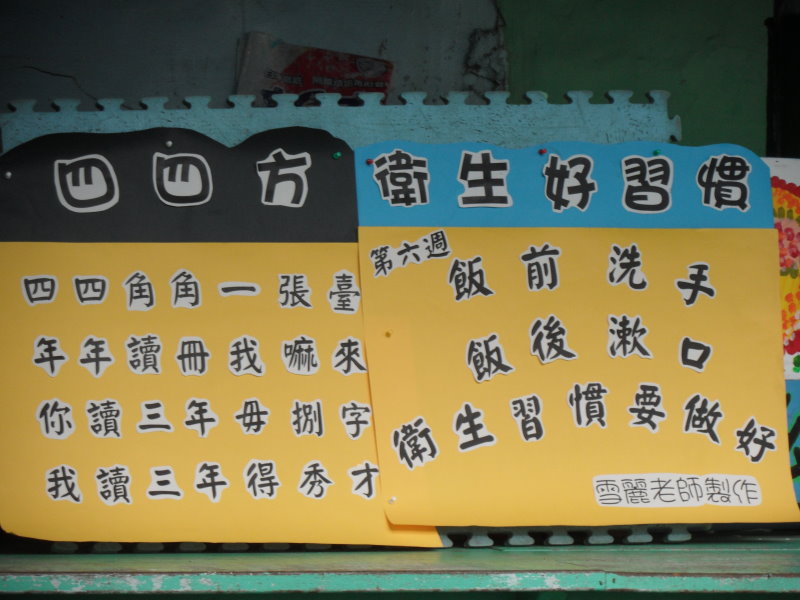 四四方
四四角角一張臺
年年讀冊我嘛來
你讀三年毋捌字
我讀三年得秀才
衛生好習慣
第六週
飯前洗手
飯後漱口
衛生習慣要做好
雪麗老師製作